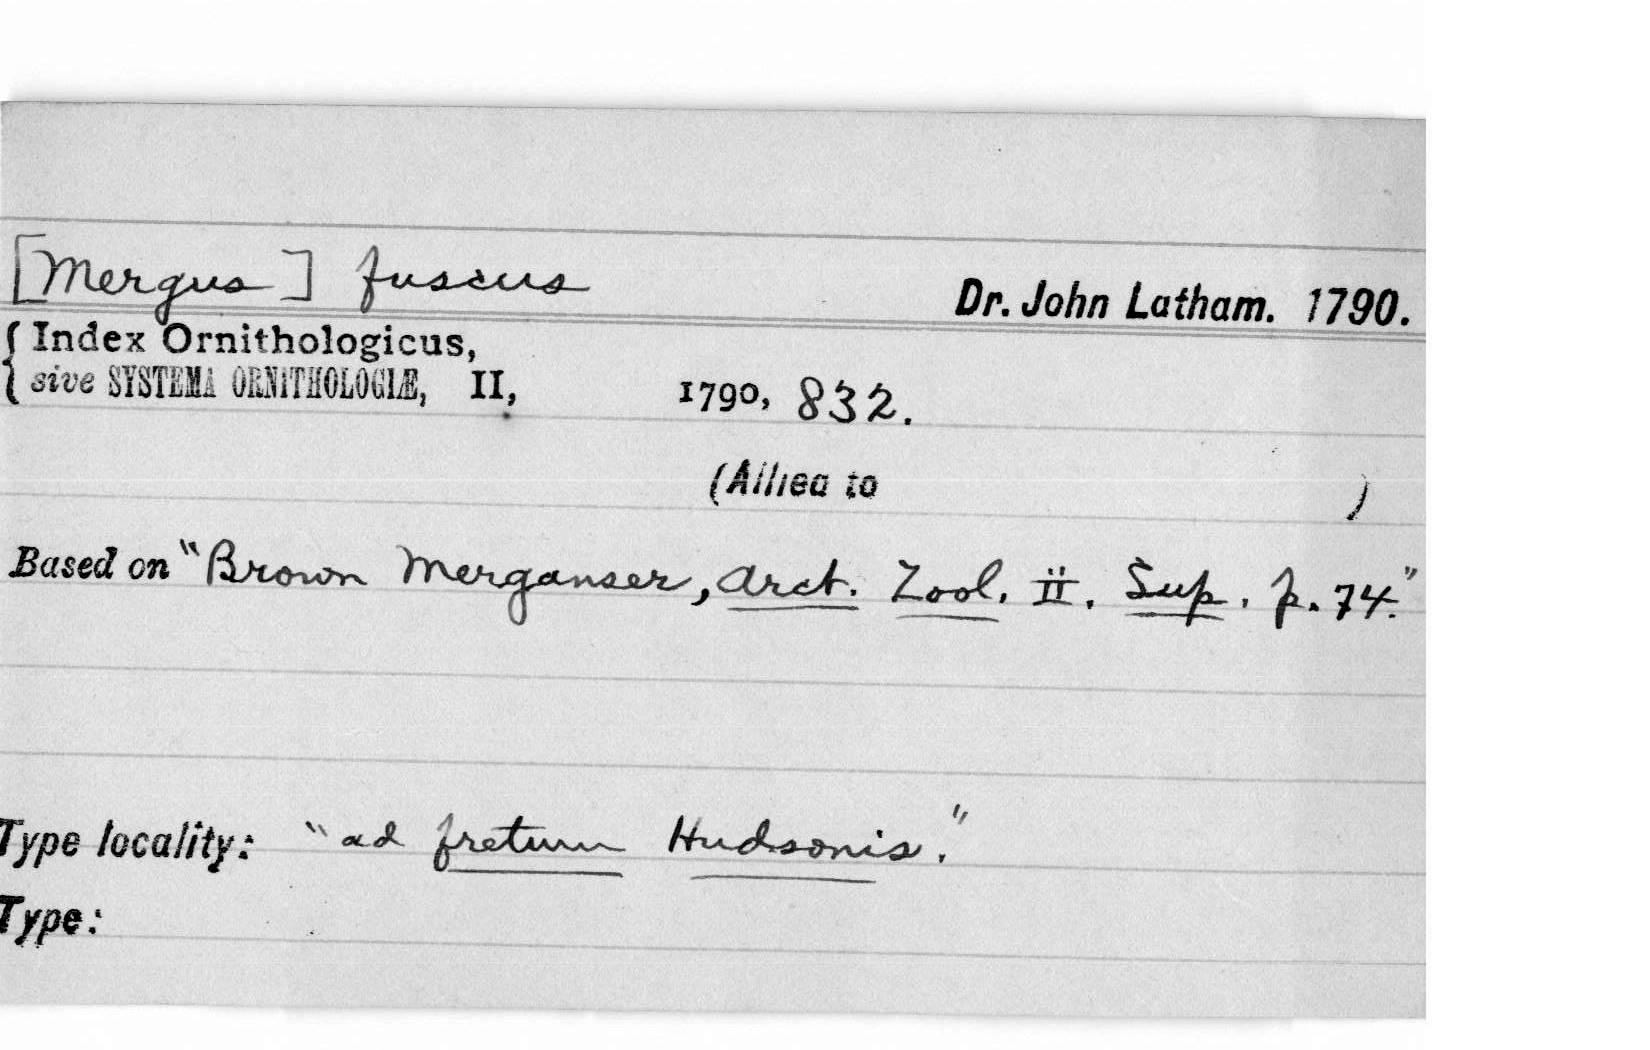 [Mergus] fuscus Dr. John Latham. 1790.
Index Ornithologicus,
sive SYSTEMA ORNITHOLOGIÆ, II, 1790, 832.
(Allied to )
Based on "Brown Merganser, Arct. Zool. ii. Sup. p. 74."
Type locality: "ad fretum Hudsonis."
Type: